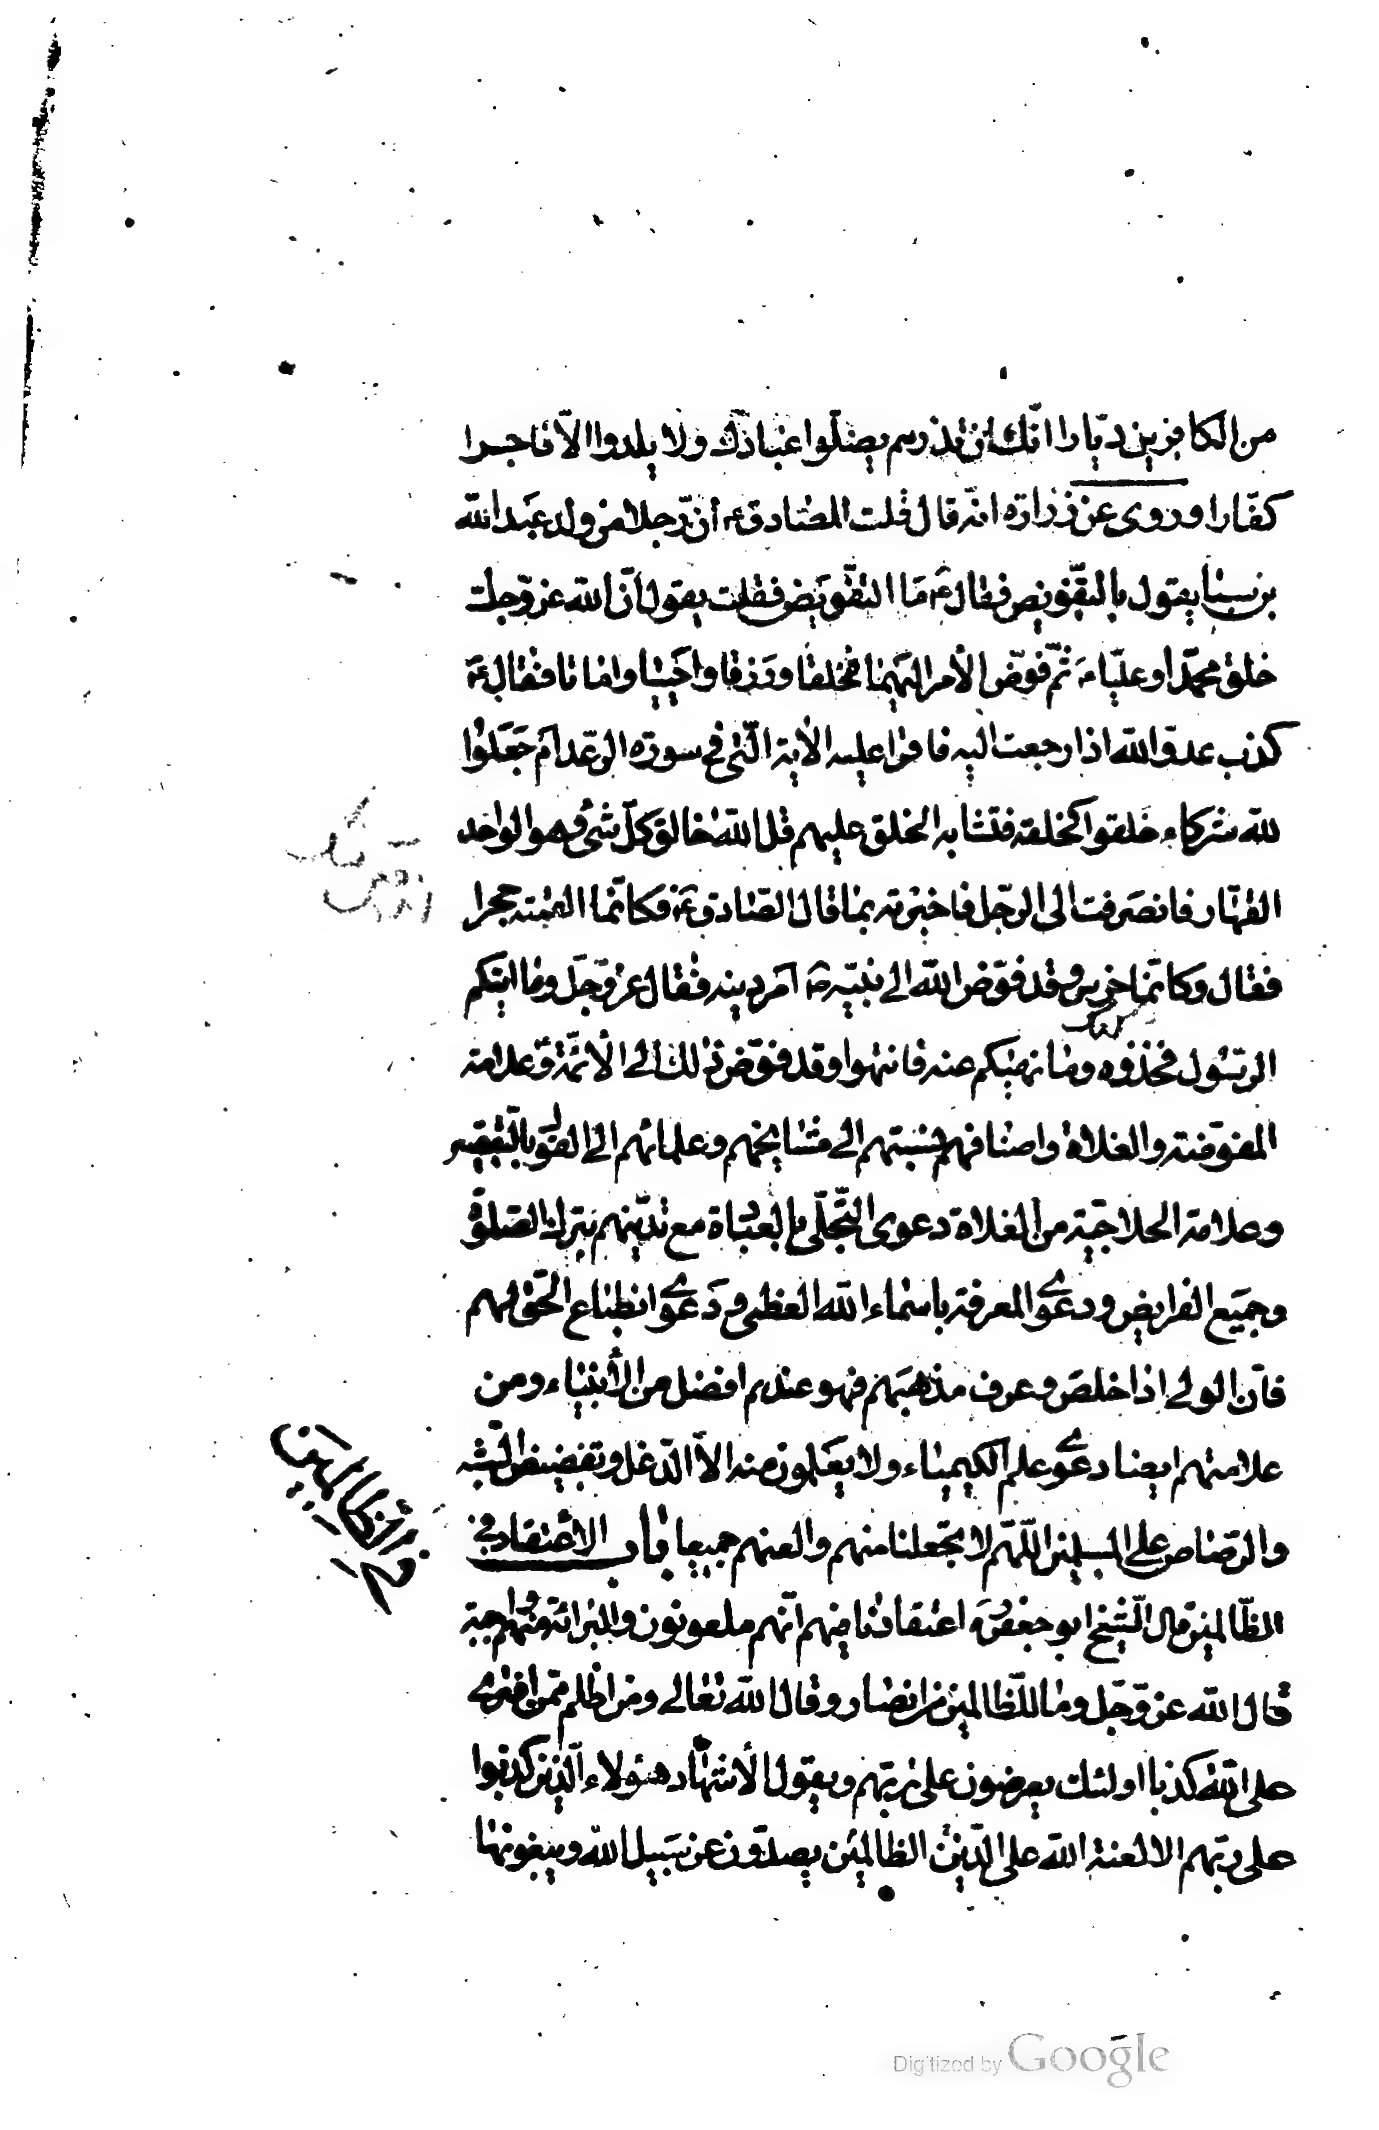 من الكافرين ديّارا انّك ان تذرهم يضلّوا عبادك ولا يلدوا الّا فاجرا
كفّارا وروى عن زرارة انّه قال قلت للصّادق ع انّ رجلا من ولد عبد الله
بن سبا يقول بالتفّويض فقال ع ما التفّويض فقلت يقول انّ الله عزّ وجلّ
خلق محمّدا وعليّا ثمّ فوّض الأمر اليهما فخلقا ورزقا واحييا واماتا فقال ع
كذب عدوّ الله اذا رجعت اليه فاقرا عليه الأية الّتى فى سورة الرّعد ام جعلوا
لله شركاء خلقوا كخلقه فتشابه الخلق عليهم قل الله خالق كلّ شئ وهو الواحد
القهّار فانصرفت الى الرّجل فاخبرته بما قال الصّادق ع فكانّما القمته حجرا
فقال وكانّما خرس وقد فوّض الله الى نبيّه ص امر دينه فقال عزّ وجلّ وما اتيكم
الرّسول فخذوه وما نهيكم عنه فانتهوا وقد فوّض ذلك الى الأئمّة ع وعلامة
المفوّضة والغلاة واصنافهم نسبتهم الى مشايخهم وعلمائهم الى القول بالتقصير
وعلامة الحلاجيّة من الغلاة دعوى التجّلّى بالعبادة مع تديّنهم بترك الصّلوة
وجميع الفرايض ودعوى المعرفة باسماء الله العظمى ودعوى انطباع الحقّ لهم
فانّ الولى اذا خلص وعرف مذهبهم فهو عندهم افضل من الأنبياء ومن
علامتهم ايضا دعوى علم الكيمياء ولا يعلمون منه الاّ الدّغل وتفضيض الشّبه
والرّصاص على المسلمين اللّهمّ لا تجعلنا منهم والعنهم جميعا باب الأعتقاد في
الظّالمين قال الشّيخ ابو جعفر ره اعتقادنا فيهم انّهم ملعونون والبرائة منهم واجبة
قال الله عزّ وجلّ وما للظّالمين من انصار وقال الله تعالى ومن اظلم ممّن افترى
على الله كذبا اولئك يعرضون على ربّهم ويقول الأشهاد هؤلاء الّذين كذبوا
على ربّهم الا لعنة الله على الظالمين الّذين يصدّون عن سبيل الله ويبغونها
في الظالمين
Digitized by Google